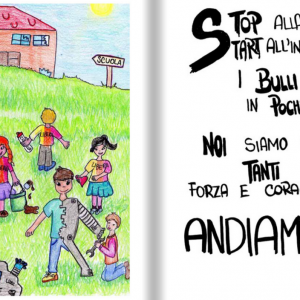 SCUOLA
STOP ALLA
START ALL'IN
I BULLI
IN POCH
NOI SIAMO
TANTI
FORZA E CORA
ANDIAM